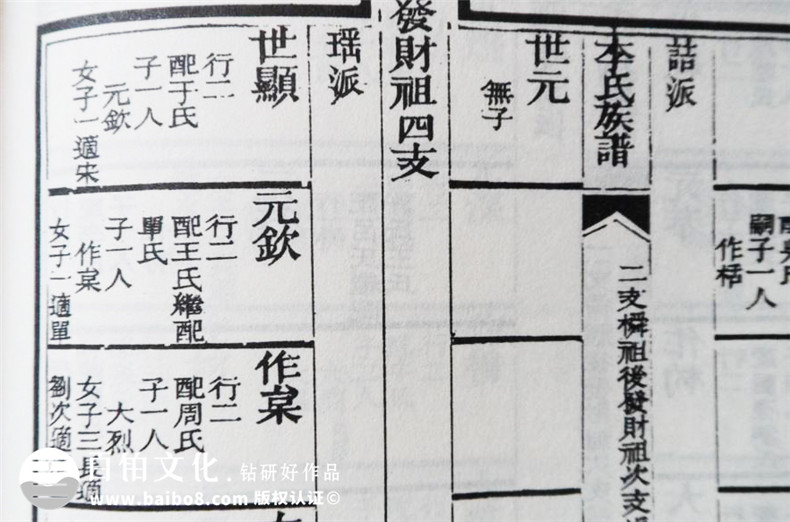 詰派
嗣子一人
作梧
李氏族譜
二支檪祖後發財祖次支
世元
無子
發財祖四支
瑶派
世顯
行二
配于氏
子一人
元欽
女子一適宋
元欽
行二
配王氏繼配
單氏
子一人
作棠
女子一適單
作棠
行二
配周氏
子一人
大烈
女子三長適
劉次適
文化·钻研好作品
www.baibo8.com 版权认证©